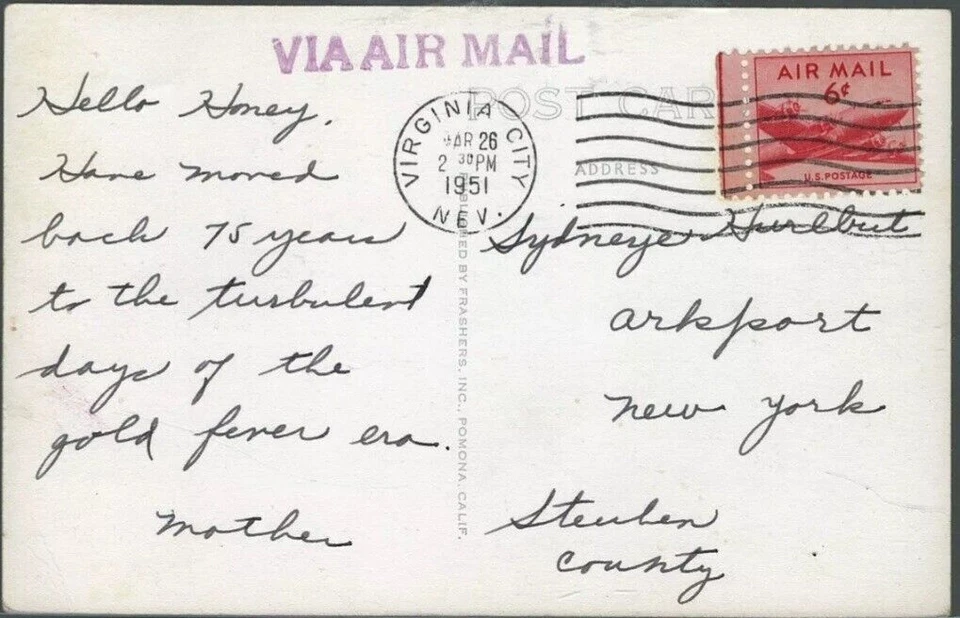 VIA AIR MAIL
POST CARD
AIR MAIL
6¢
U.S. POSTAGE
VIRGINIA CITY
MAR 26
2 30 PM
1951
NEV.
ADDRESS
Hello Honey,
Have moved
back 75 years
to the turbulent
days of the
gold fever era.
Mother
PUBLISHED BY FRASHERS, INC., POMONA, CALIF.
Sydneye Hurlbut
Arkport
New York
Steuben
County